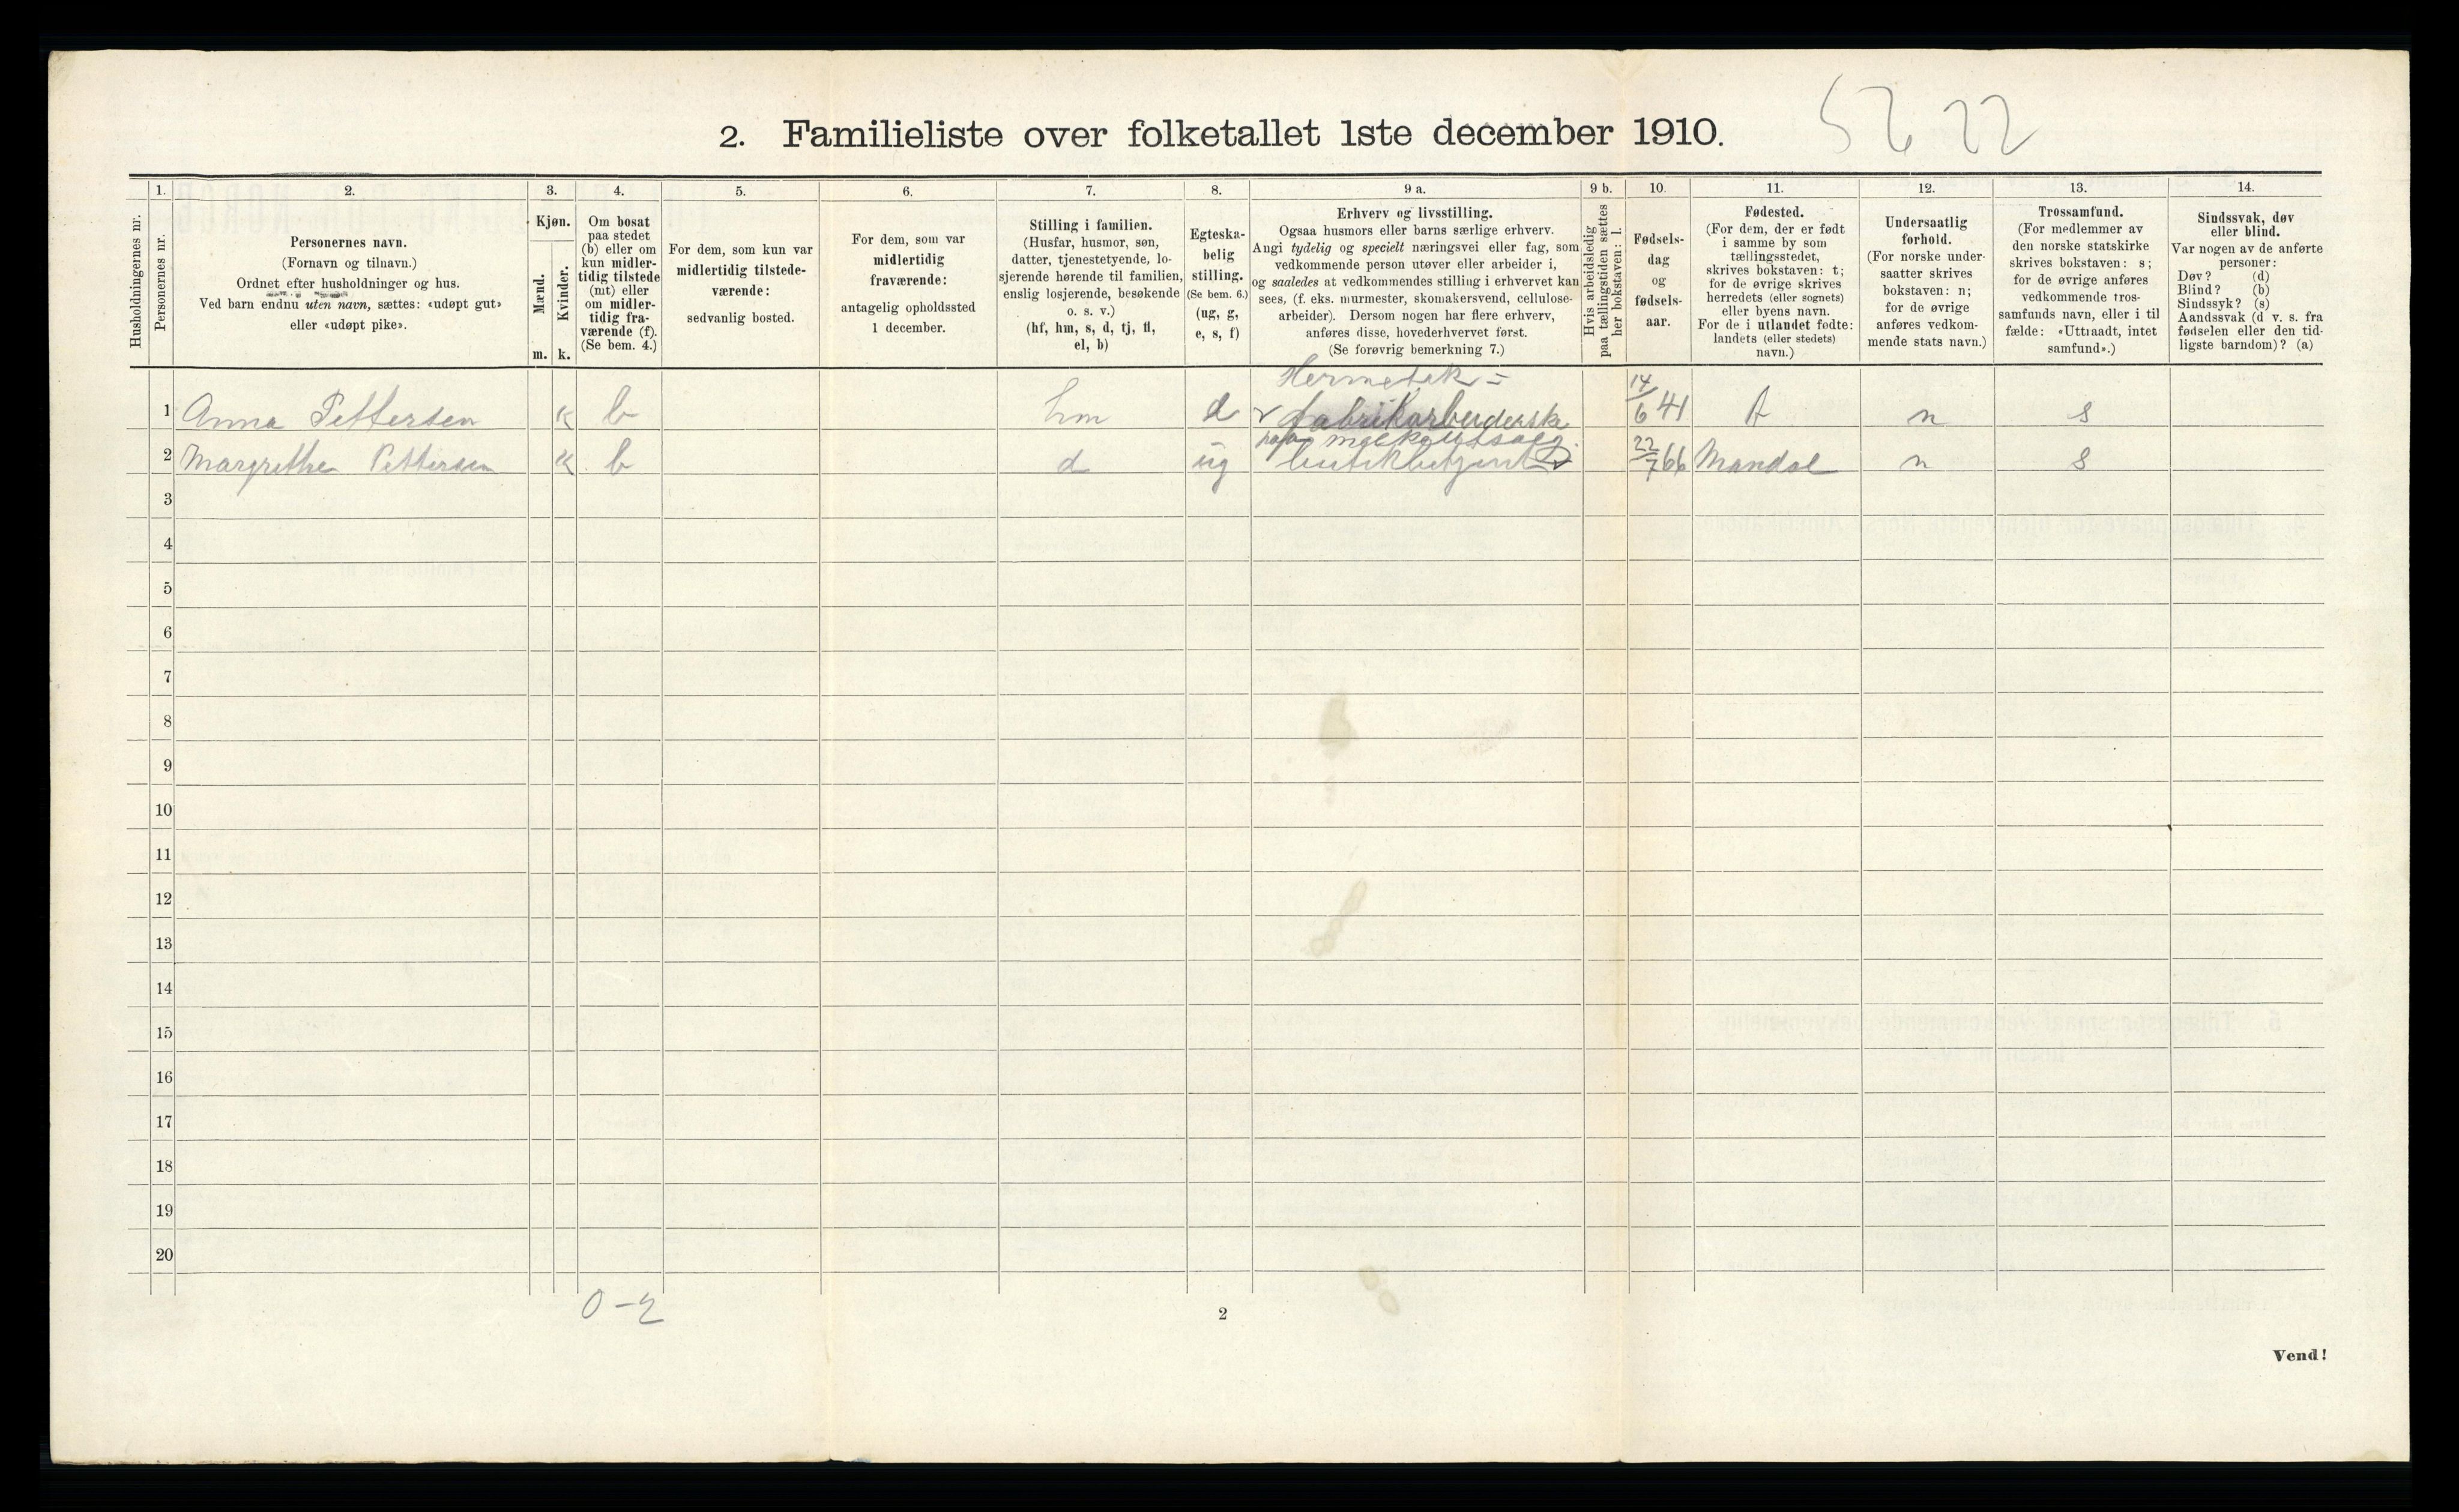 2. Familieliste over folketallet 1ste december 1910.
5622
1. 2. 3. 4. 5. 6. 7. 8. 9 a. 9 b. 10. 11. 12. 13. 14.
Husholdningernes nr.
Personernes nr.
Personernes navn.
(Fornavn og tilnavn.)
Ordnet efter husholdninger og hus.
Ved barn endnu uten navn, sættes: «udøpt gut»
eller «udøpt pike».
Kjøn.
Mænd.
Kvinder.
m. k.
Om bosat
paa stedet
(b) eller om
kun midler-
tidig tilstede
(mt) eller
om midler-
tidig fra-
værende (f).
(Se bem. 4.)
For dem, som kun var
midlertidig tilstede-
værende:
sedvanlig bosted.
For dem, som var
midlertidig
fraværende:
antagelig opholdssted
1 december.
Stilling i familien.
(Husfar, husmor, søn,
datter, tjenestetyende, lo-
sjerende hørende til familien,
enslig losjerende, besøkende
o. s. v.)
(hf, hm, s, d, tj, fl,
el, b)
Egteska-
belig
stilling.
(Se bem. 6.)
(ug, g,
e, s, f)
Erhverv og livsstilling.
Ogsaa husmors eller barns særlige erhverv.
Angi tydelig og specielt næringsvei eller fag, som
vedkommende person utøver eller arbeider i,
og saaledes at vedkommendes stilling i erhvervet kan
sees, (f. eks. murmester, skomakersvend, cellulose-
arbeider). Dersom nogen har flere erhverv,
anføres disse, hovederhvervet først.
(Se forøvrig bemerkning 7.)
Hvis arbeidsledig
paa tællingstiden sættes
her bokstaven: l.
Fødsels-
dag
og
fødsels-
aar.
Fødested.
(For dem, der er født
i samme by som
tællingsstedet,
skrives bokstaven: t;
for de øvrige skrives
herredets (eller sognets)
eller byens navn.
For de i utlandet fødte:
landets (eller stedets)
navn.)
Undersaatlig
forhold.
(For norske under-
saatter skrives
bokstaven: n;
for de øvrige
anføres vedkom-
mende stats navn.)
Trossamfund.
(For medlemmer av
den norske statskirke
skrives bokstaven: s;
for de øvrige anføres
vedkommende tros-
samfunds navn, eller i til
fælde: «Uttraadt, intet
samfund».)
Sindssvak, døv
eller blind.
Var nogen av de anførte
personer:
Døv? (d)
Blind? (b)
Sindssyk? (s)
Aandssvak (d v. s. fra
fødselen eller den tid-
ligste barndom)? (a)
Hermetik =
1 Anna Pettersen k b hm fabrikarbeiderske 14/6 41 t n s
melkeutsalg.
2 Margrethe Pettersen k b d ug butikbetjent 22/7 66 Mandal n s
3
4
5
6
7
8
9
10
11
12
13
14
15
16
17
18
19
20
0-2
2
Vend!